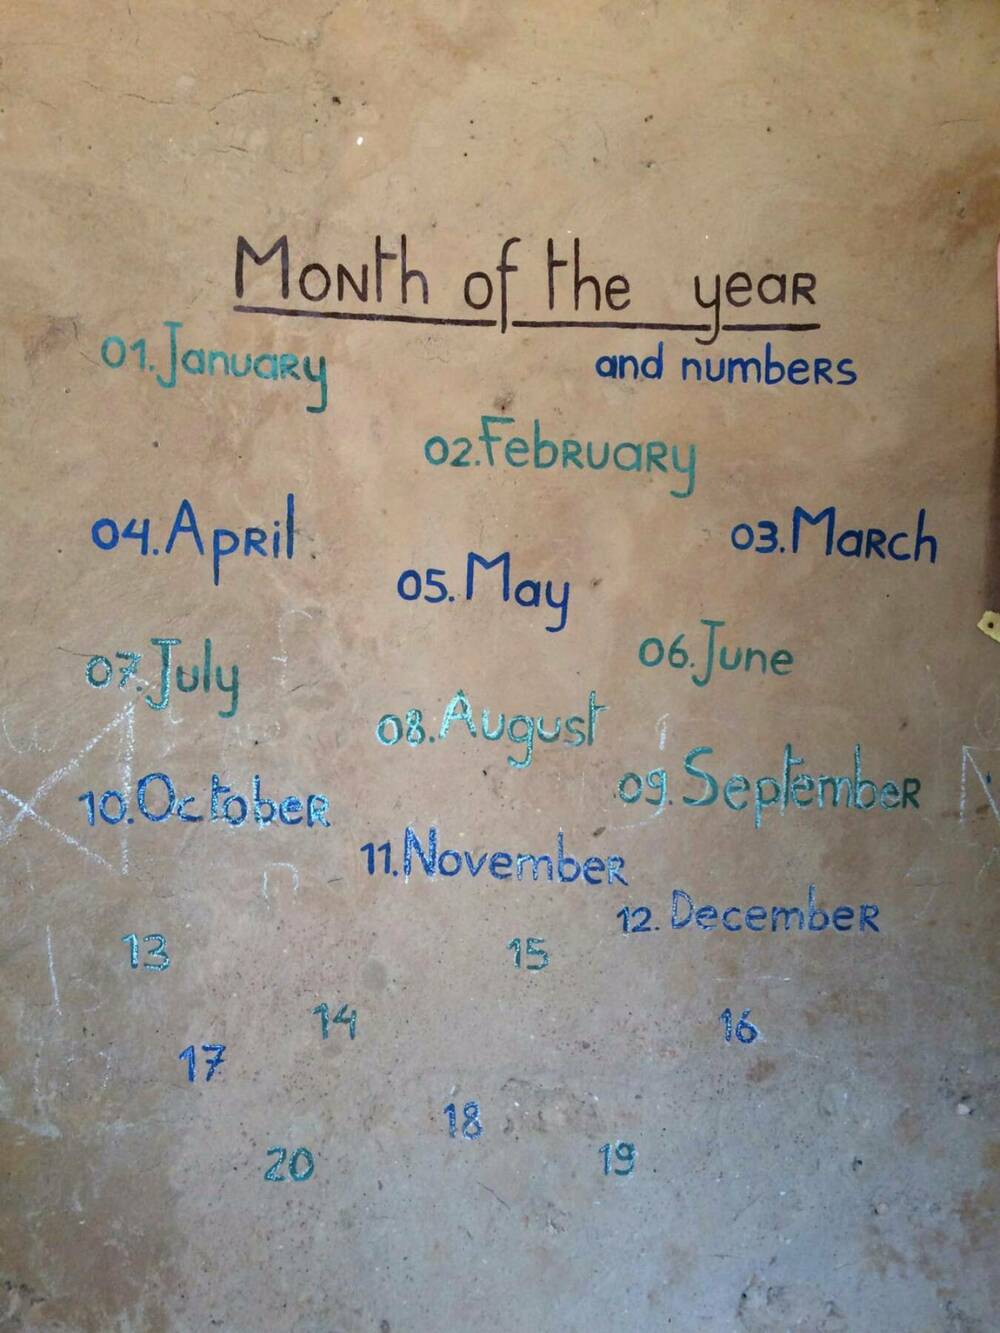 Month of the year
and numbers
01. January
02. February
03. March
04. April
05. May
06. June
07. July
08. August
09. September
10. October
11. November
12. December
13
15
14
16
17
18
20
19